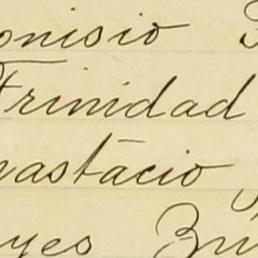 onisio
Trinidad
nastacio
yes Zú